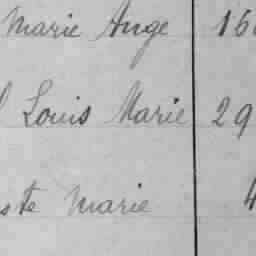 Marie Ange 15
Louis Marie 29
ste Marie 4